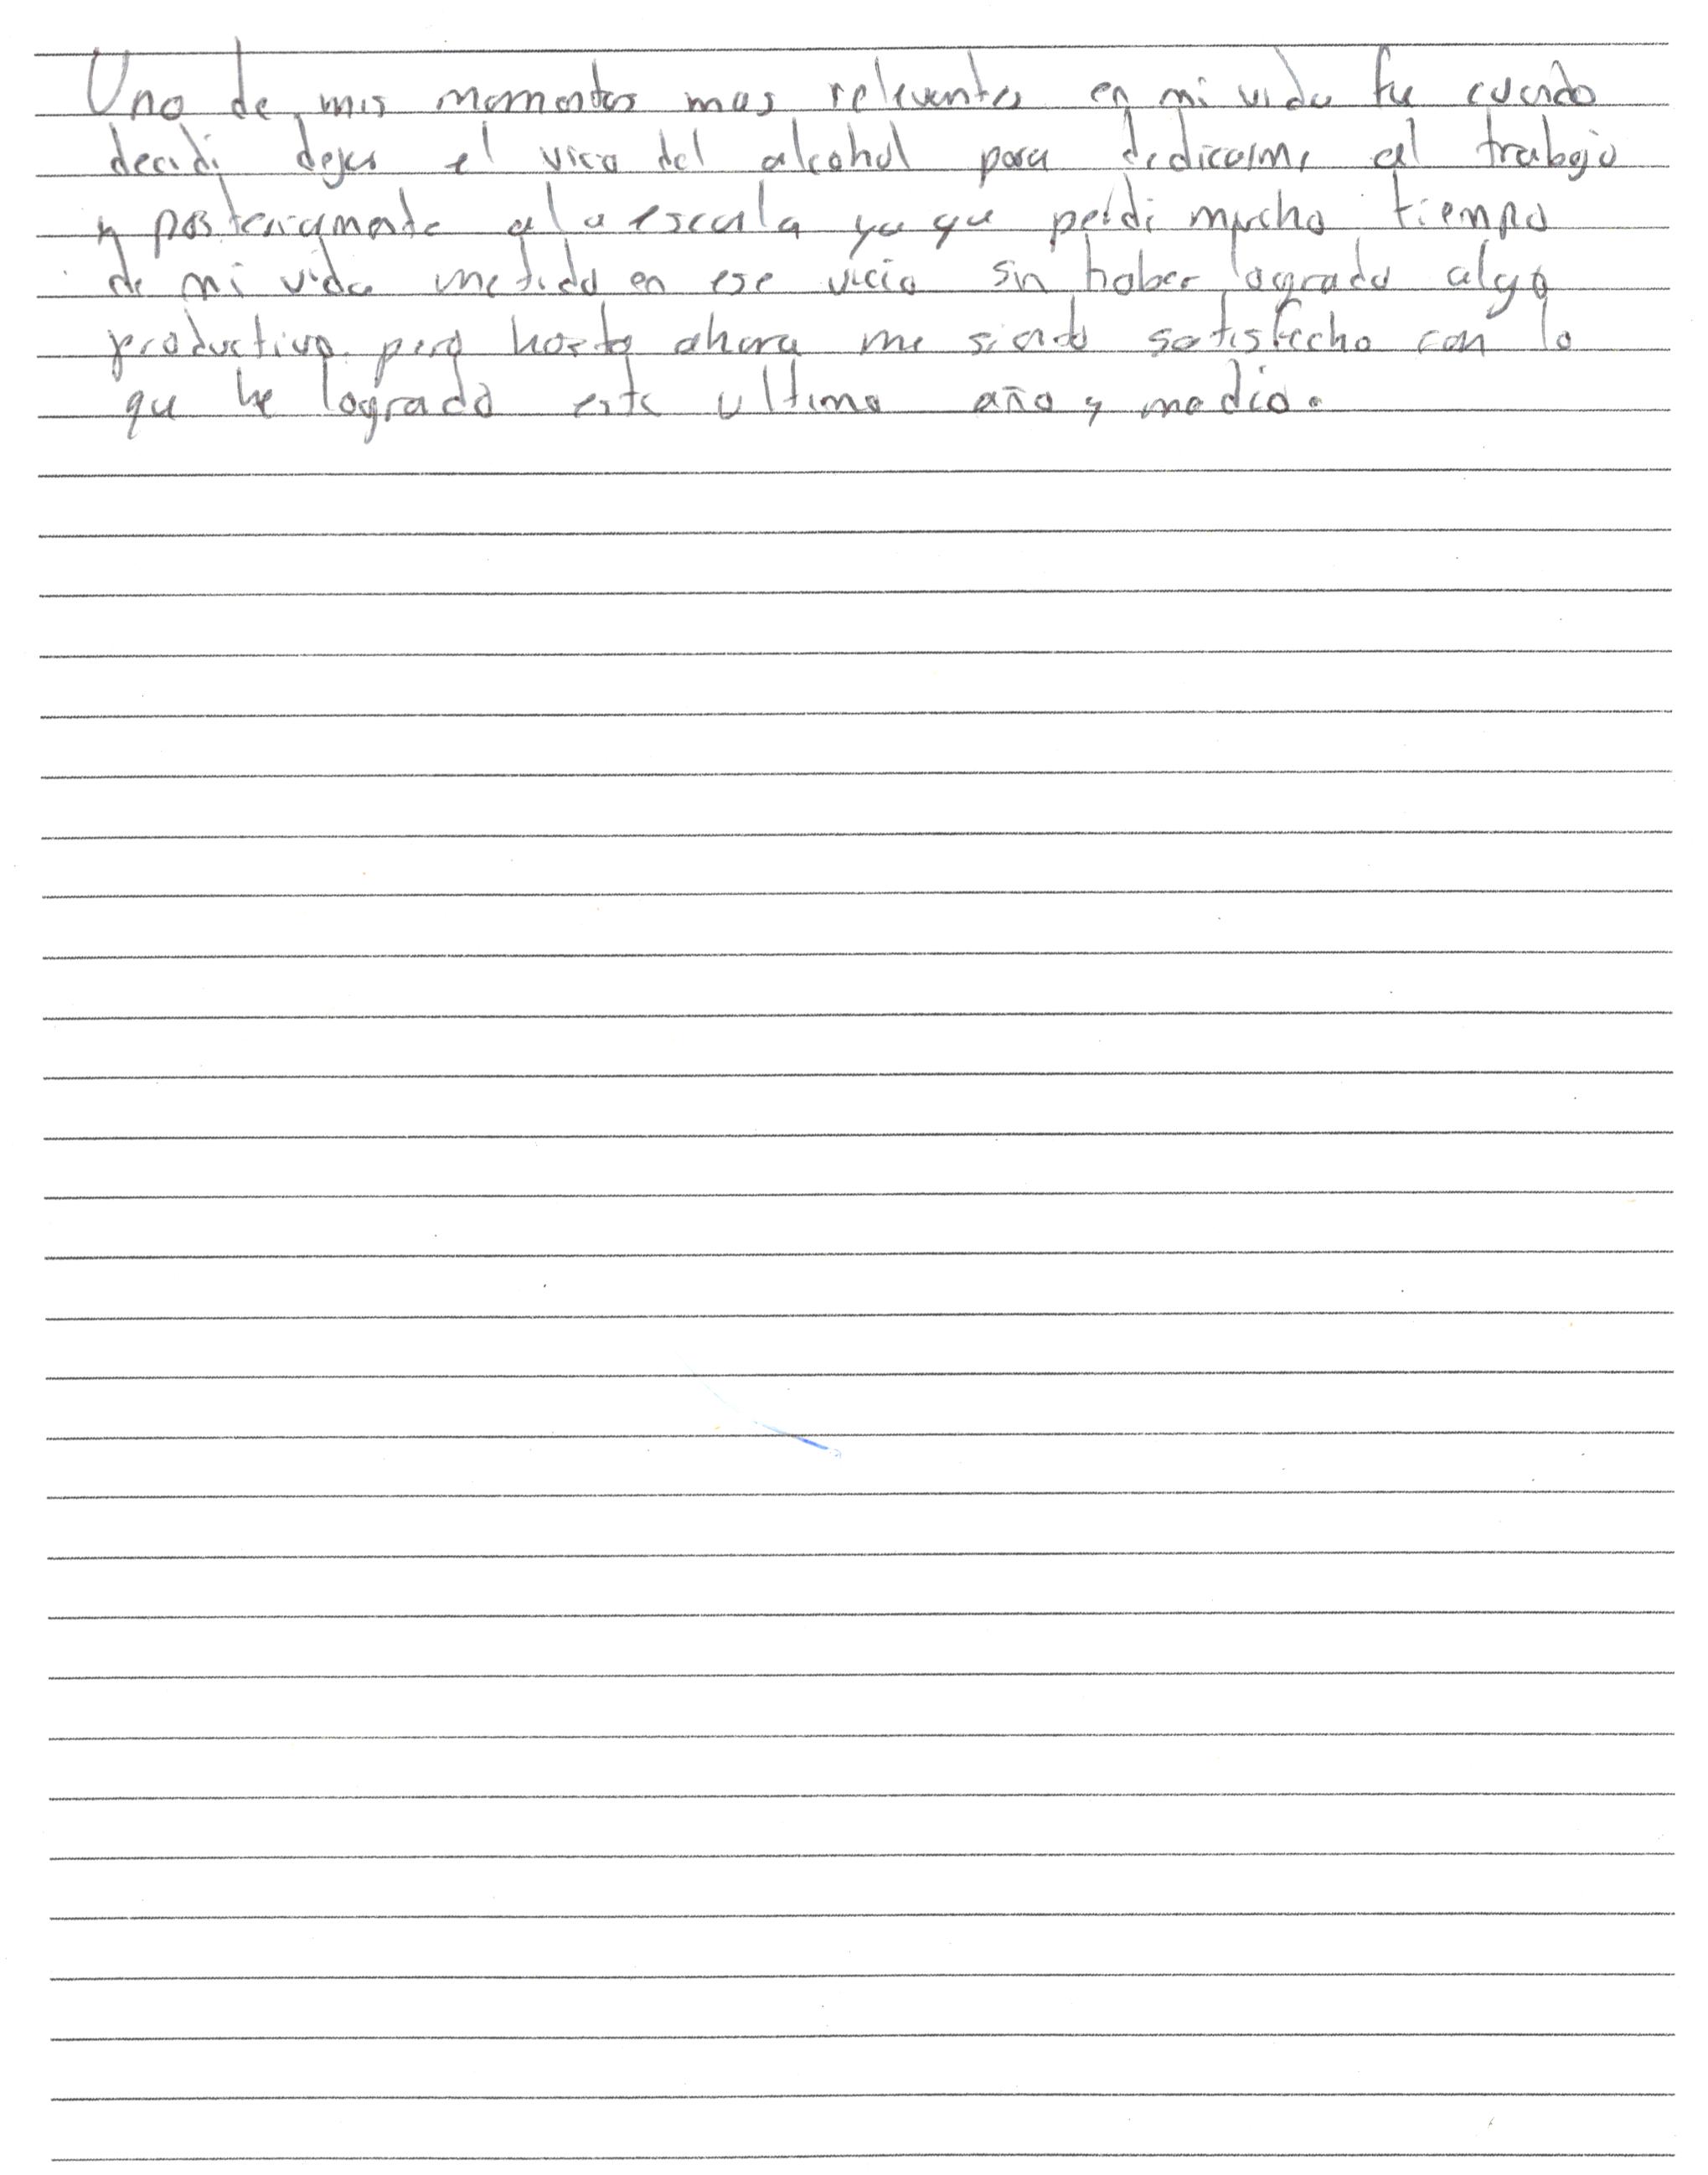 Uno de mis momentos mas relevantes en mi vida fue cuando
decidi dejar el vicio del alcohol para dedicarme al trabajo
y posteriormente a la escuela ya que perdi mucho tiempo
de mi vida metido en ese vicio sin haber logrado algo
productivo pero hasta ahora me siento satisfecho con lo
que he logrado este ultimo año y medio.